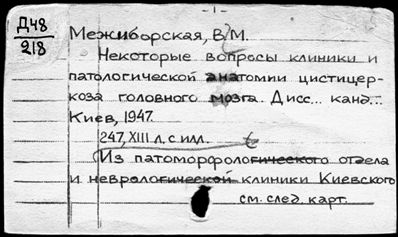 - 1 -
Д48
218
Межиборская, В. М.
Некоторые вопросы клиники и
патологической анатомии цистицер-
коза головного мозга. Дисс... канд...
Киев, 1947.
247, XIII л. с илл.
Из патоморфологического отдела
и неврологической клиники Киевского
см. след. карт.